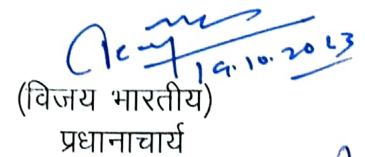 19.10.2023
(विजय भारतीय)
प्रधानाचार्य